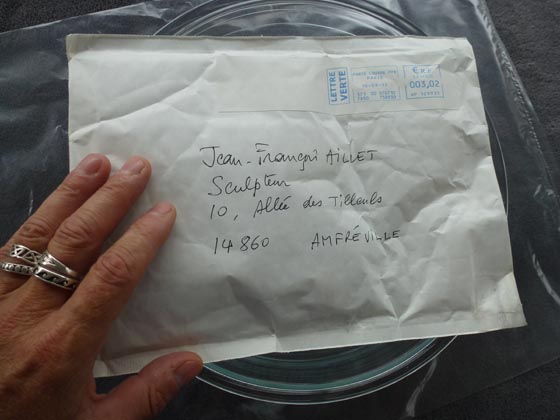 LETTRE
VERTE
PARIS
003,02
Jean-François AILLET
Sculpteur
10, Allée des Tilleuls
14 860 AMFRÉVILLE